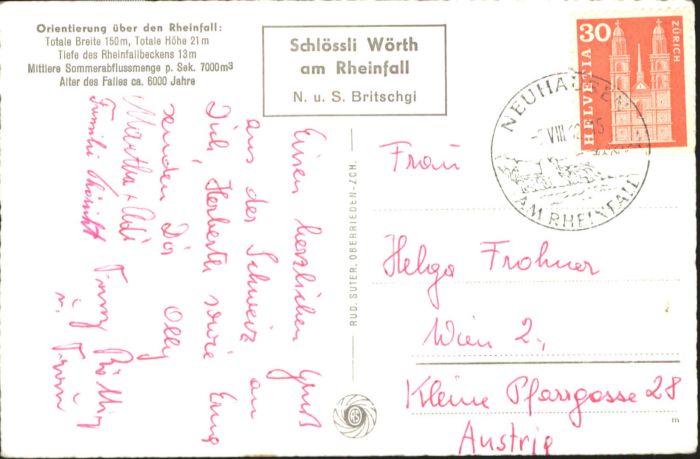 Orientierung über den Rheinfall:
Totale Breite 150m, Totale Höhe 21m
Tiefe des Rheinfallbeckens 13m
Mittlere Sommerabflussmenge p. Sek. 7000m³
Alter des Falles ca. 6000 Jahre
Schlössli Wörth
am Rheinfall
N. u. S. Britschgi
30
HELVETIA
ZÜRICH
NEUHAUSEN
VIII
AM RHEINFALL
Einen herzlichen Gruß
aus der Schweiz an
Dich, Herberth sowie
senden Dir Olly
Martha +
Familie
RUD. SUTER, OBERRIEDEN-ZCH.
Frau
Helga Frohner
Wien 2.,
Kleine Pfarrgasse 28
Austria
m